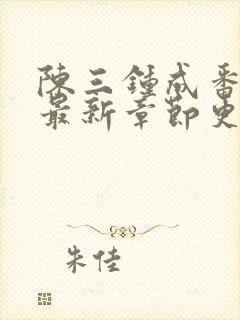 陳三鍾成番
最新章節史
朱佳